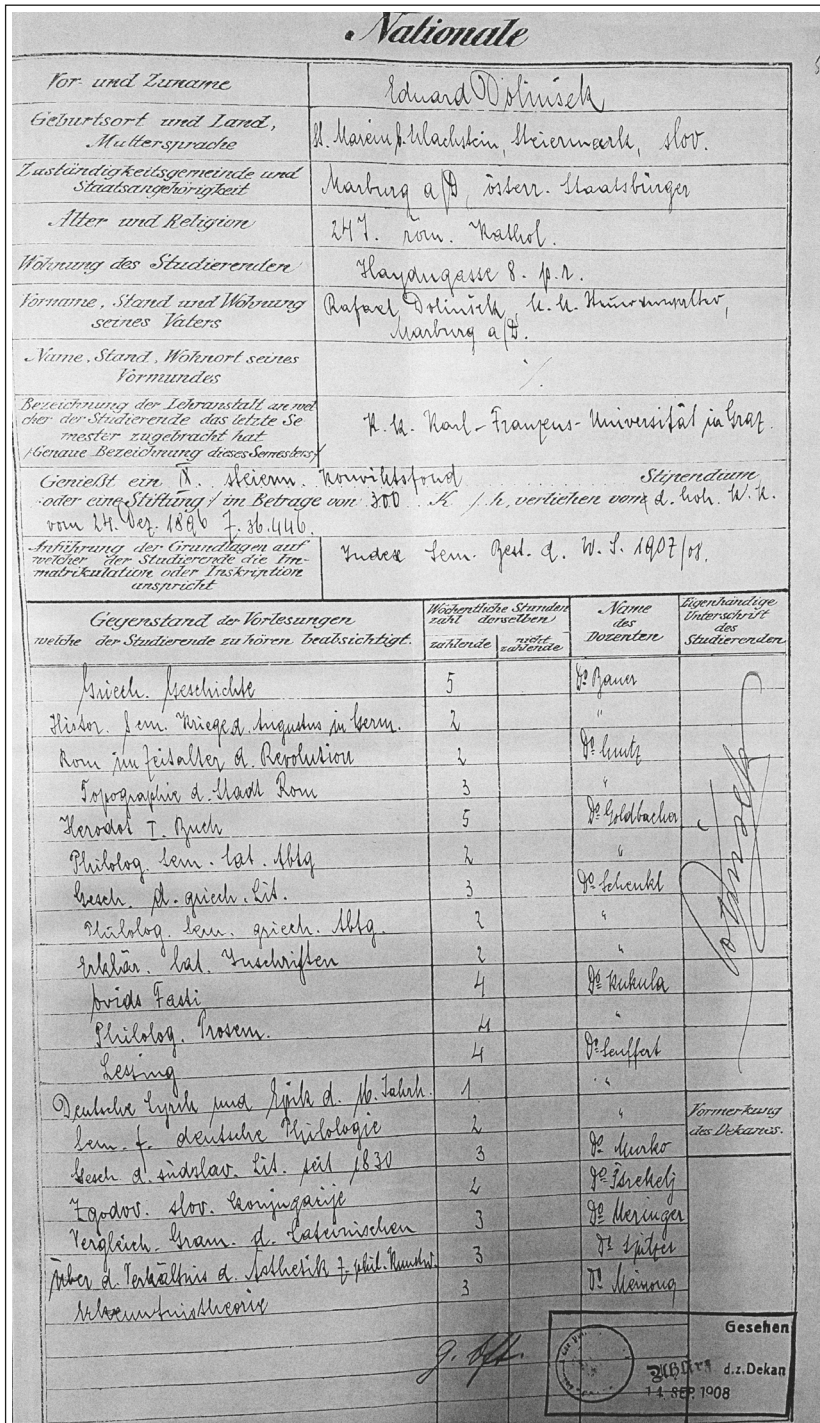 Nationale
Vor- und Zuname
Eduard Dolinšek
Geburtsort und Land,
Muttersprache
St. Marein b. Steiermark, slov.
Zuständigkeitsgemeinde und
Staatsangehörigkeit
Marburg a/D, österr. Staatsbürger
Alter und Religion
24 J. röm. Kathol.
Wohnung des Studierenden
Haydngasse 8. p. r.
Vorname, Stand und Wohnung
seines Vaters
Rafael Dolinšek, k. k.
Marburg a/D.
Name, Stand, Wohnort seines
Vormundes
Bezeichnung der Lehranstalt an wel
cher der Studierende das letzte Se
mester zugebracht hat
(Genaue Bezeichnung dieses Semesters)
K. k. Karl-Franzens-Universität in Graz.
Genießt ein IX. steierm. Konviktsfond Stipendium
(oder eine Stiftung) im Betrage von 300 K / h, verliehen vom d. hoh. k. k.
vom 24. Dez. 1896 Z. 36.446.
Anführung der Grundlagen auf
welcher der Studierende die Im-
matrikulation oder Inskription
anspricht
Index Sem. Best. d. W. S. 1907/08.
Gegenstand der Vorlesungen
welche der Studierende zu hören beabsichtigt.
Wöchentliche Stunden
zahl derselben
zahlende nicht zahlende
Name
des
Dozenten
Eigenhändige
Unterschrift
des
Studierenden
Griech. Geschichte 5 Dr Bauer
Histor. Sem. Kriege d. Augustus in Germ. 2 "
Rom im Zeitalter d. Revolution 2 Dr Cuntz
Topographie d. Stadt Rom 3 "
Herodot I. Buch 5 Dr Goldbacher
Philolog. Sem. lat. Abtg 2 "
Gesch. d. griech. Lit. 3 Dr Schenkl
Philolog. Sem. griech. Abtg. 2 "
Erklär. lat. Inschriften 2 "
Ovids Fasti 4 Dr Kukula
Philolog. Prosem. 4 "
Lessing 4 Dr Seuffert
Deutsche Lyrik und Epik d. 16. Jahrh. 1 "
Sem. f. deutsche Philologie 2 "
Vormerkung
des Dekanes.
Gesch. d. südslav. Lit. seit 1830 3 Dr Murko
Zgodov. slov. konjugacije 2 Dr Štrekelj
Vergleich. Gram. d. Lateinischen 3 Dr Meringer
Über d. Verhältnis d. Ästhetik z. phil. Kunstw. 3 Dr Spitzer
Erkenntnistheorie 3 Dr Meinong
Gesehen
d.z. Dekan
14. SEP. 1908